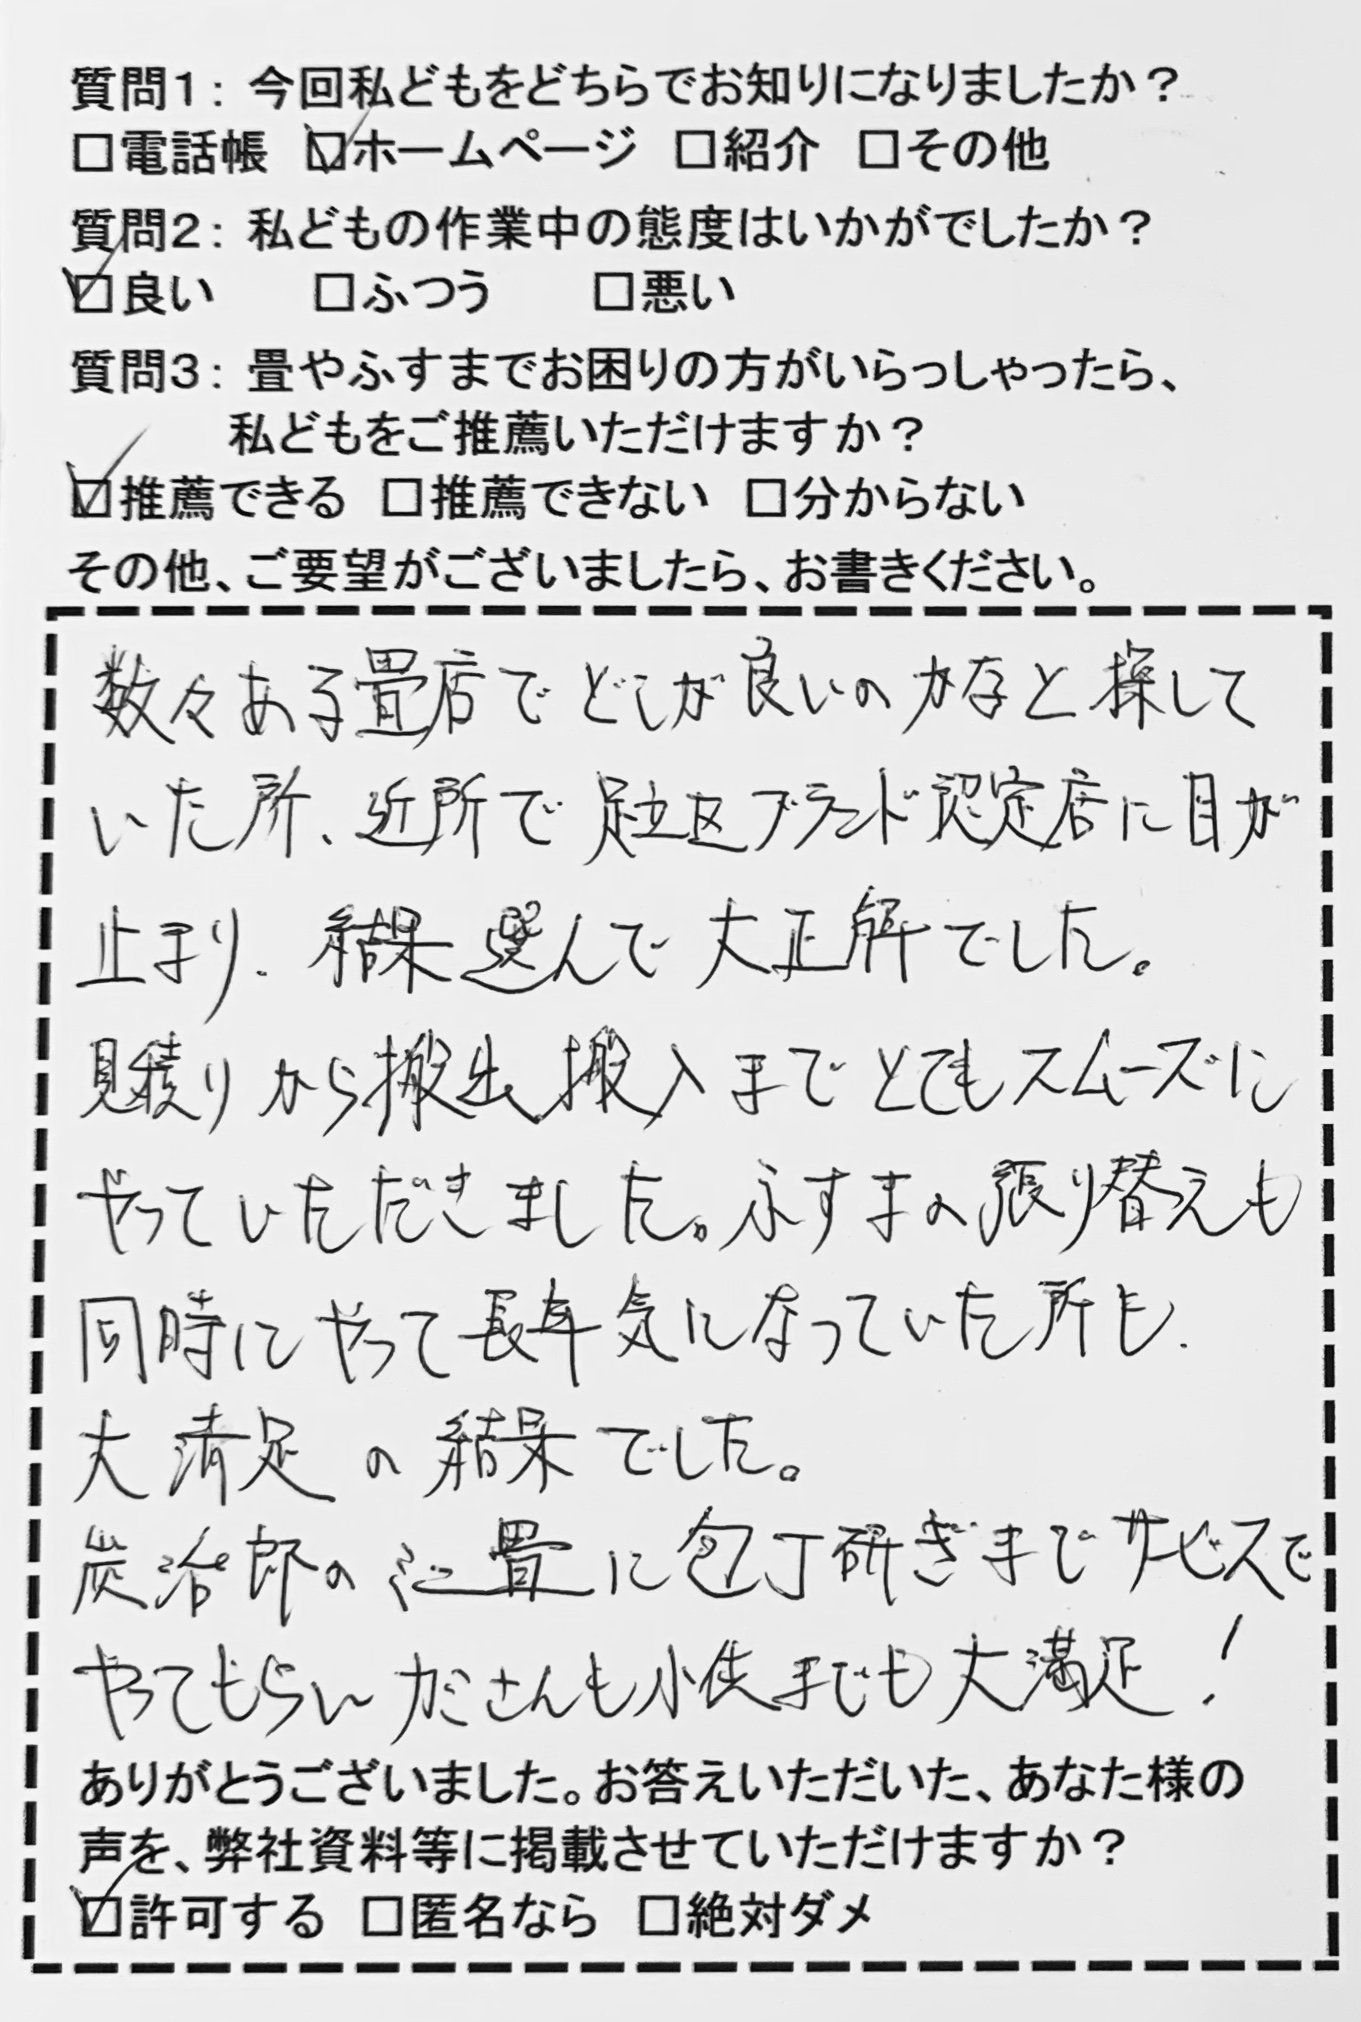 質問1： 今回私どもをどちらでお知りになりましたか？
□電話帳 ☑ホームページ □紹介 □その他
質問2： 私どもの作業中の態度はいかがでしたか？
☑良い □ふつう □悪い
質問3： 畳やふすまでお困りの方がいらっしゃったら、
私どもをご推薦いただけますか？
☑推薦できる □推薦できない □分からない
その他、ご要望がございましたら、お書きください。
数々ある畳店でどこが良いのかなと探して
いた所、近所で足立区ブランド認定店に目が
止まり、結果選んで大正解でした。
見積りから搬出搬入までとてもスムーズに
やっていただきました。ふすまの張り替えも
同時にやって長年気になっていた所も、
大満足の結果でした。
炭治郎のミニ畳に包丁研ぎまでサービスで
やってもらいカミさんも小供までも大満足！
ありがとうございました。お答えいただいた、あなた様の
声を、弊社資料等に掲載させていただけますか？
☑許可する □匿名なら □絶対ダメ